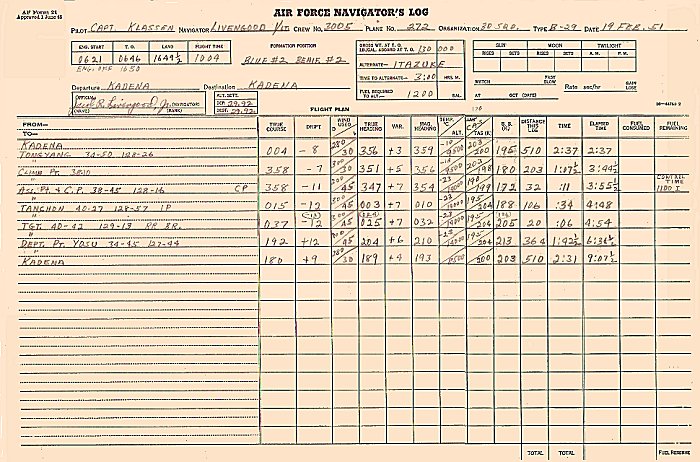 AIR FORCE NAVIGATOR'S LOG
PILOT CAPT. KLASSEN NAVIGATOR LIVENGOOD 1/LT. CREW NO. 3005 PLANE NO. 272 ORGANIZATION 30 SQD. TYPE B-29 DATE 19 FEB. 51
ENG. START T. O. LAND FLIGHT TIME
0621 0646 1649½ 1004
ENG. OFF 1650
FORMATION POSITION
BLUE #2 BEHIF #2
GROSS WT. AT T. O. 130 000
ALTERNATE— ITAZUKE
TIME TO ALTERNATE— 3:00 HRS. M.
FUEL REQUIRED TO ALT.— 1200 GAL.
SUN MOON TWILIGHT
RISES SETS RISES SETS A. M. P. M.
WATCH FAST SLOW Rate sec/hr GAIN LOSE
AT GCT (DATE)
Departure KADENA Destination KADENA
OFFICIAL: Jacob R. Livengood Jr.
(NAME) (RANK)
ALT. SETS.
DEP. 29.92
DEST. 29.92
FLIGHT PLAN
FROM— TRUE COURSE DRIFT WIND USED TRUE HEADING VAR. MAG. HEADING TEMP. °C ALT. CAS TAS (K) DISTANCE THIS LEG TIME ELAPSED TIME FUEL CONSUMED FUEL REMAINING
TO—
KADENA
TONGYANG 34-50 128-26 004 -8 280/30 356 +3 359 -10/9500 203/200 195 510 2:37 2:37
CLIMB PT. 38-10 358 -7 300/30 351 +5 356 203/198 180 203 1:07½ 3:44½
ASS. PT & C.P. 38-45 128-16 CP 358 -11 347 +7 354 172 32 :11 3:55½ CONTROL TIME 1100 I
TANCHON 40-27 128-57 IP 015 -12 003 +7 010 188 106 :34 4:48
TGT. 40-42 129-13 RR BR. 037 -12 025 +7 032 205 20 :06 4:54
DEPT. PT. YOSU 34-45 127-44 192 +12 204 +6 210 213 364 1:42½ 6:36½
KADENA 180 +9 189 +4 193 203 510 2:31 9:07½
TOTAL TOTAL FUEL RESERVE